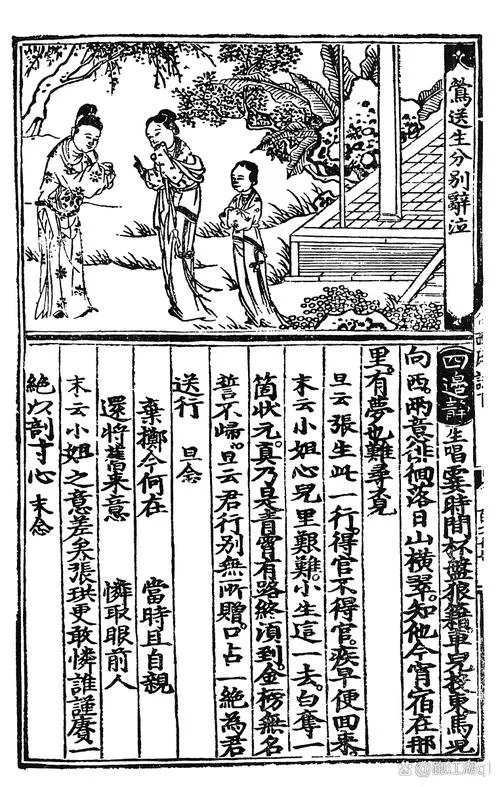 鶯送生分別辭泣
四邉静 生唱霎時間杯盤狼籍車兒投東馬兒
向西。兩意徘徊落日山横翠。知他今宵宿在那
里。有夢也難尋覓
旦云張生此一行。得官不得官。疾早便回來。
末云小姐心兒里艱難。小生這一去。白奪一
箇狀元。真乃是青霄有路終須到。金榜無名
誓不歸。旦云君行別無所贈。口占一絕為君
送行 旦念
棄擲今何在 當時且自親
還將舊來意 憐取眼前人
末云小姐之意差矣。張珙更敢憐誰謹賡一
絕以剖寸心 末念